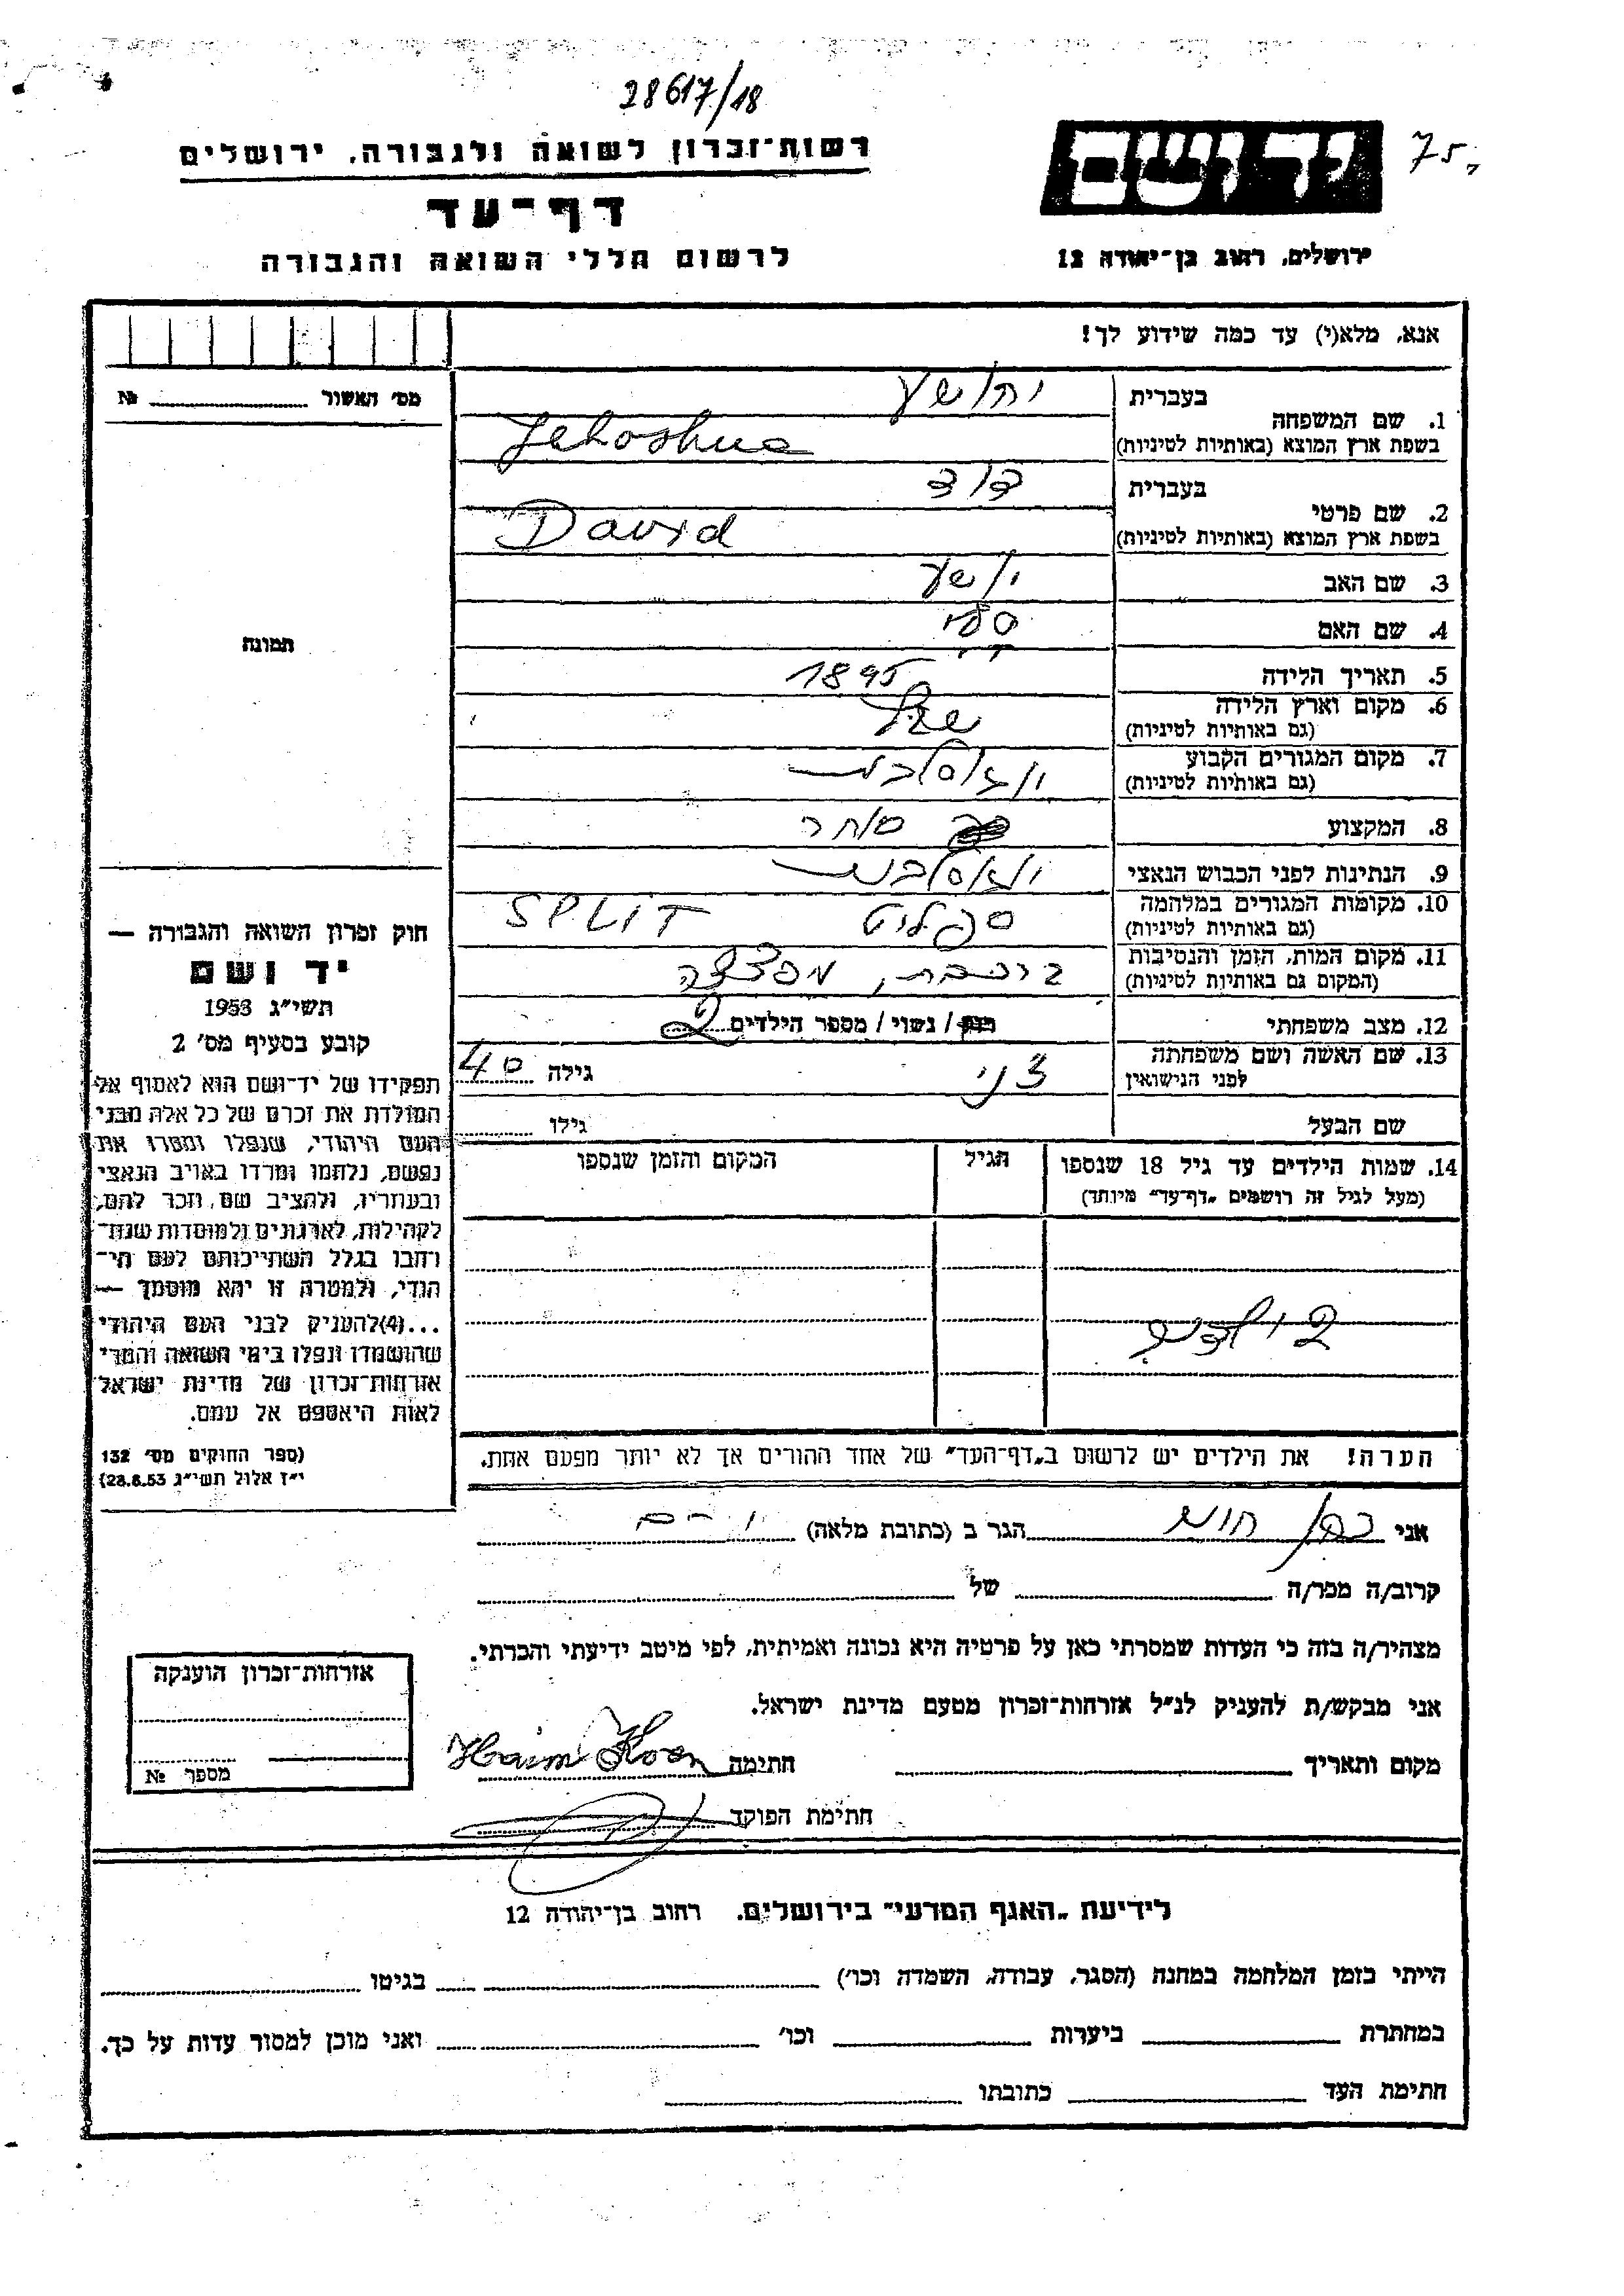 28617/18
רשות־זכרון לשואה ולגבורה, ירושלים
דף־עד
לרשום חללי השואה והגבורה
ידושם
75,
ירושלים, רחוב בן־יהודה 12
אנא, מלא(י) עד כמה שידוע לך!
מס' האשור № 
1. שם המשפחה
בעברית יהושע
בשפת ארץ המוצא (באותיות לטיניות) Jehoshua
2. שם פרטי
בעברית דוד
בשפת ארץ המוצא (באותיות לטיניות) David
3. שם האב יושע
4. שם האם
5. תאריך הלידה 1895
6. מקום וארץ הלידה
(גם באותיות לטיניות)
7. מקום המגורים הקבוע
(גם באותיות לטיניות)
8. המקצוע סוחר
9. הנתינות לפני הכבוש הנאצי
10. מקומות המגורים במלחמה ספליט SPLIT
(גם באותיות לטיניות)
11. מקום המות, הזמן והנסיבות ברכבת, מפצצה
(המקום גם באותיות לטיניות)
12. מצב משפחתי רוק / נשוי / מספר הילדים 2
13. שם האשה ושם משפחתה
לפני הנישואין גילה 40
שם הבעל גילו
14. שמות הילדים עד גיל 18 שנספו
(מעל לגיל זה רושמים „דף־עד” מיוחד)
הגיל
המקום והזמן שנספו
2 ילדים
הערה! את הילדים יש לרשום ב„דף־העד” של אחד ההורים אך לא יותר מפעם אחת.
תמונה
חוק זכרון השואה והגבורה —
יד ושם
תשי"ג 1953
קובע בסעיף מס' 2
תפקידו של יד־ושם הוא לאסוף אל
המולדת את זכרם של כל אלה מבני
העם היהודי, שנפלו ומסרו את
נפשם, נלחמו ומרדו באויב הנאצי
ובעוזריו, ולהציב שם וזכר להם,
לקהילות, לארגונים ולמוסדות שנח־
רבו בגלל השתייכותם לעם הי־
הודי, ולמטרה זו יהא מוסמך —
...(4)להעניק לבני העם היהודי
שהושמדו ונפלו בימי השואה והמרי
אזרחות־זכרון של מדינת ישראל
לאות היאספם אל עמם.
(ספר החוקים מס' 132
י"ז אלול תשי"ג 28.8.53)
אני כהן חיים הגר ב (כתובת מלאה) י-ם
קרוב/ה מכר/ה של
מצהיר/ה בזה כי העדות שמסרתי כאן על פרטיה היא נכונה ואמיתית, לפי מיטב ידיעתי והכרתי.
אני מבקש/ת להעניק לנ"ל אזרחות־זכרון מטעם מדינת ישראל.
מקום ותאריך חתימה Haim Koen
חתימת הפוקד
אזרחות־זכרון הוענקה
מספר №
לידיעת „האגף המדעי” בירושלים. רחוב בן־יהודה 12
הייתי בזמן המלחמה במחנה (הסגר, עבודה, השמדה וכו') בגיטו
במחתרת ביערות וכו' ואני מוכן למסור עדות על כך.
חתימת העד כתובתו